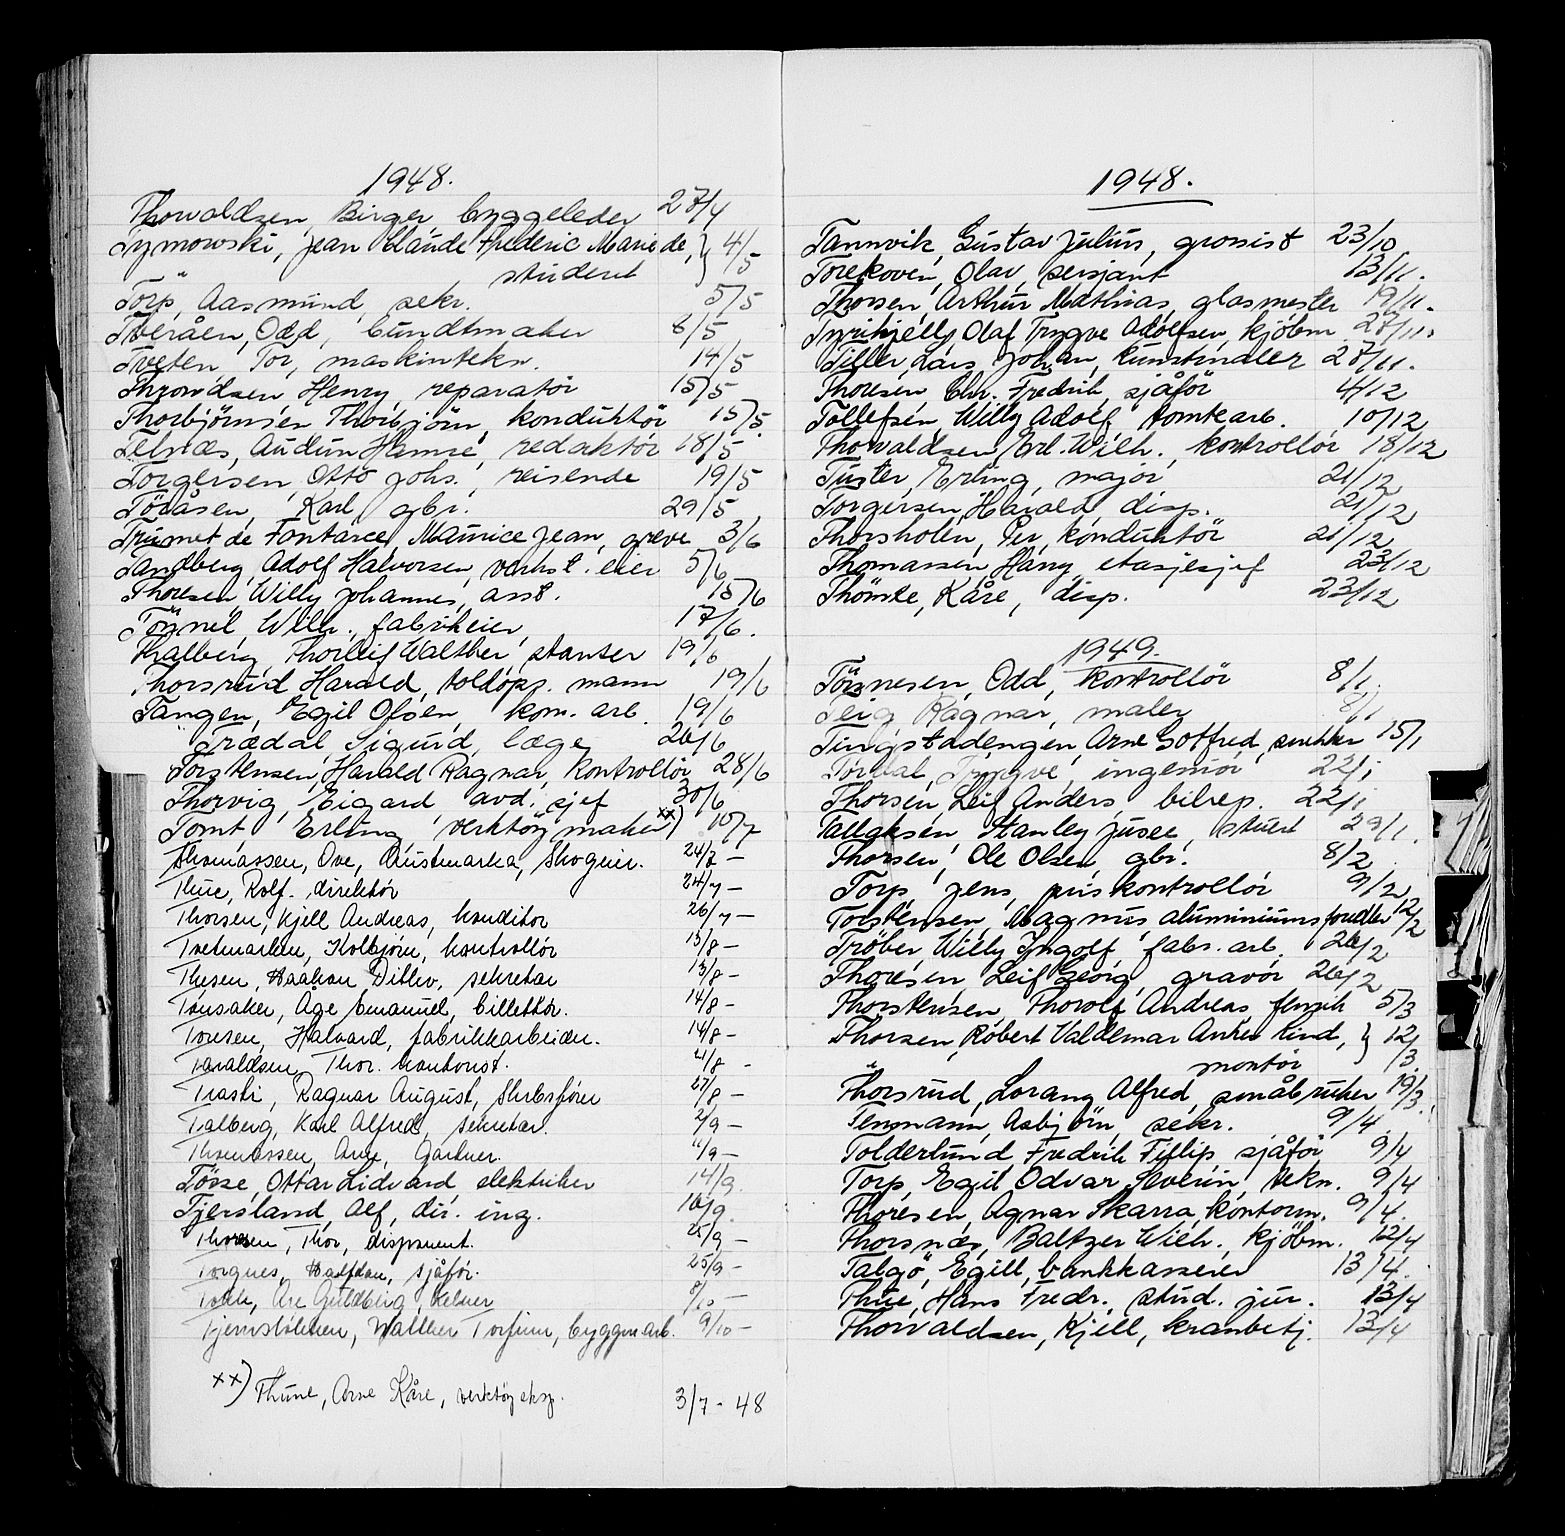 1948.
Thorvaldsen, Birger byggeleder 27/4
Tymowski, Jean Claude Frederic Marie de, } 4/5
" student
Torp, Aasmund, sekr. 5/5
Tveråen, Odd, buntmaker 8/5
Tveten, Tor, maskintekn. 14/5
Throndsen Henry, reparatør 15/5
Thorbjörnsen Thorbjörn, konduktör 15/5
Telnæs, Audun Hansic, redaktör 18/5
Torgersen, Otto Johs., reisende 19/5
Töråsen, Karl, gbr. 29/5
Trumet de Fontarce, Maurice Jean, greve 3/6
Tandberg, Adolf Halvorsen, verkst. eier 5/6
Thoresen Willy Johannes, asst. 15/6
Tönnel, Wilh., fabrikeier, 17/6.
Thalberg, Thorleif Walther, stanser 19/6
Thorsrud Harald, toldops. mann 19/6
Tangen, Egil Olsen, kom. arb. 19/6
Trædal, Sigurd, læge 26/6
Torstensen, Harald Ragnar, kontrollör 28/6
Thorvig, Eigard avd. sjef 30/6
Tomt, Erling, verktöymaker xx) 10/7
Thomassen, Ove, Austmarka, skogeier. 24/7 —
Thue, Rolf. direktör 24/7 —
Thorsen, Kjell Andreas, konditor 26/7 —
Tvetmarken, Kolbjörn, kontrollör 13/8 —
Thesen, Haakon Ditlev, sekretær 13/8 —
Tonsaker, Åge Emanuel, billettör. 14/8 —
Tonsen, Halvard, fabrikkarbeider. 14/8 —
Taraldsen, Thor. kontorist. 4/8 -
Trasti, Ragnar August, skrbsfører 27/8 —
Talberg, Karl Alfred, sekretær. 2/9 —
Thomassen, Arne, Gartner. 11/9 —
Tösse, Ottar Lidvard elektriker 14/9
Tjersland, Alf, dir. ing. 16/9.
Thoresen, Thor, disponent. 25/9 —
Torgnes, Halfdan, sjåför. 25/9 —
Tveh, Are Guldberg, kelner 8/10 —
Tjernslökken, Walther Torfinn, byggm.arb. 9/10 —
xx) Thune, Arne Kåre, verktöyeksp. 3/7 - 48
1948.
Tannvik, Gustav Julius, grossist 23/10
Torekoven, Olav, sersjant 13/11.
Thorsen, Arthur Mathias, glasmester 19/11.
Tyrihjell, Olaf Trygve Adolfsen, kjöbm. 27/11.
Tiller, Lars Johan, kunstmaler 27/11.
Thoresen, Chr. Fredrik, sjåför 4/12
Tollefsen, Willy Adolf, tomtearb. 10/12
Thorvaldsen, Erl. Wilh., kontrollör 18/12
Tuster, Erling, major 21/12
Torgersen, Harald disp. 21/12
Thorsholen, Per, konduktör 21/12
Thomassen, Harry, etasjesjef 23/12
Thömte, Kåre, disp. 23/12
1949.
Tönnesen, Odd, kontrollör 8/1.
Teig Ragnar, maler 8/1
Tingstadengen, Arne Gotfred, snekker 15/1
Tordal, Trygve, ingeniör 22/1
Thorsen, Leif Anders, bilrep. 22/1
Tallaksen, Stanley Jusee, stuert 29/1.
Thorsen, Ole Olsen, gbr. 8/2
Torp, Jens, priskontrollör 9/2
Torstensen, Magnus, aluminiumsfondler 12/2
Tröber, Willy Ingolf, fabr. arb. 26/2
Thoresen, Leif Georg, gravör 26/2
Thorstensen, Thorolf Andreas, flysik 5/3
Thorsen, Robert Valdemar Anker Kind, } 12/3.
" montör
Thorsrud, Lorang Alfred, småbruker 19/3.
Tennmann, Asbjörn, sekr. 9/4.
Tolderlund, Fredrik Fillip, sjåför 9/4
Torp, Egil Odvar Severin, tekn. 9/4
Thoresen, Agnar Skarra, kontorm. 9/4.
Thorsnæs, Baltzer Wilh., kjöbm. 12/4
Talgö, Egill, bankkasserer 13/4.
Thue, Hans Fredr., stud. jur. 13/4
Thorvaldsen, Kjell, kranbetj. 13/4